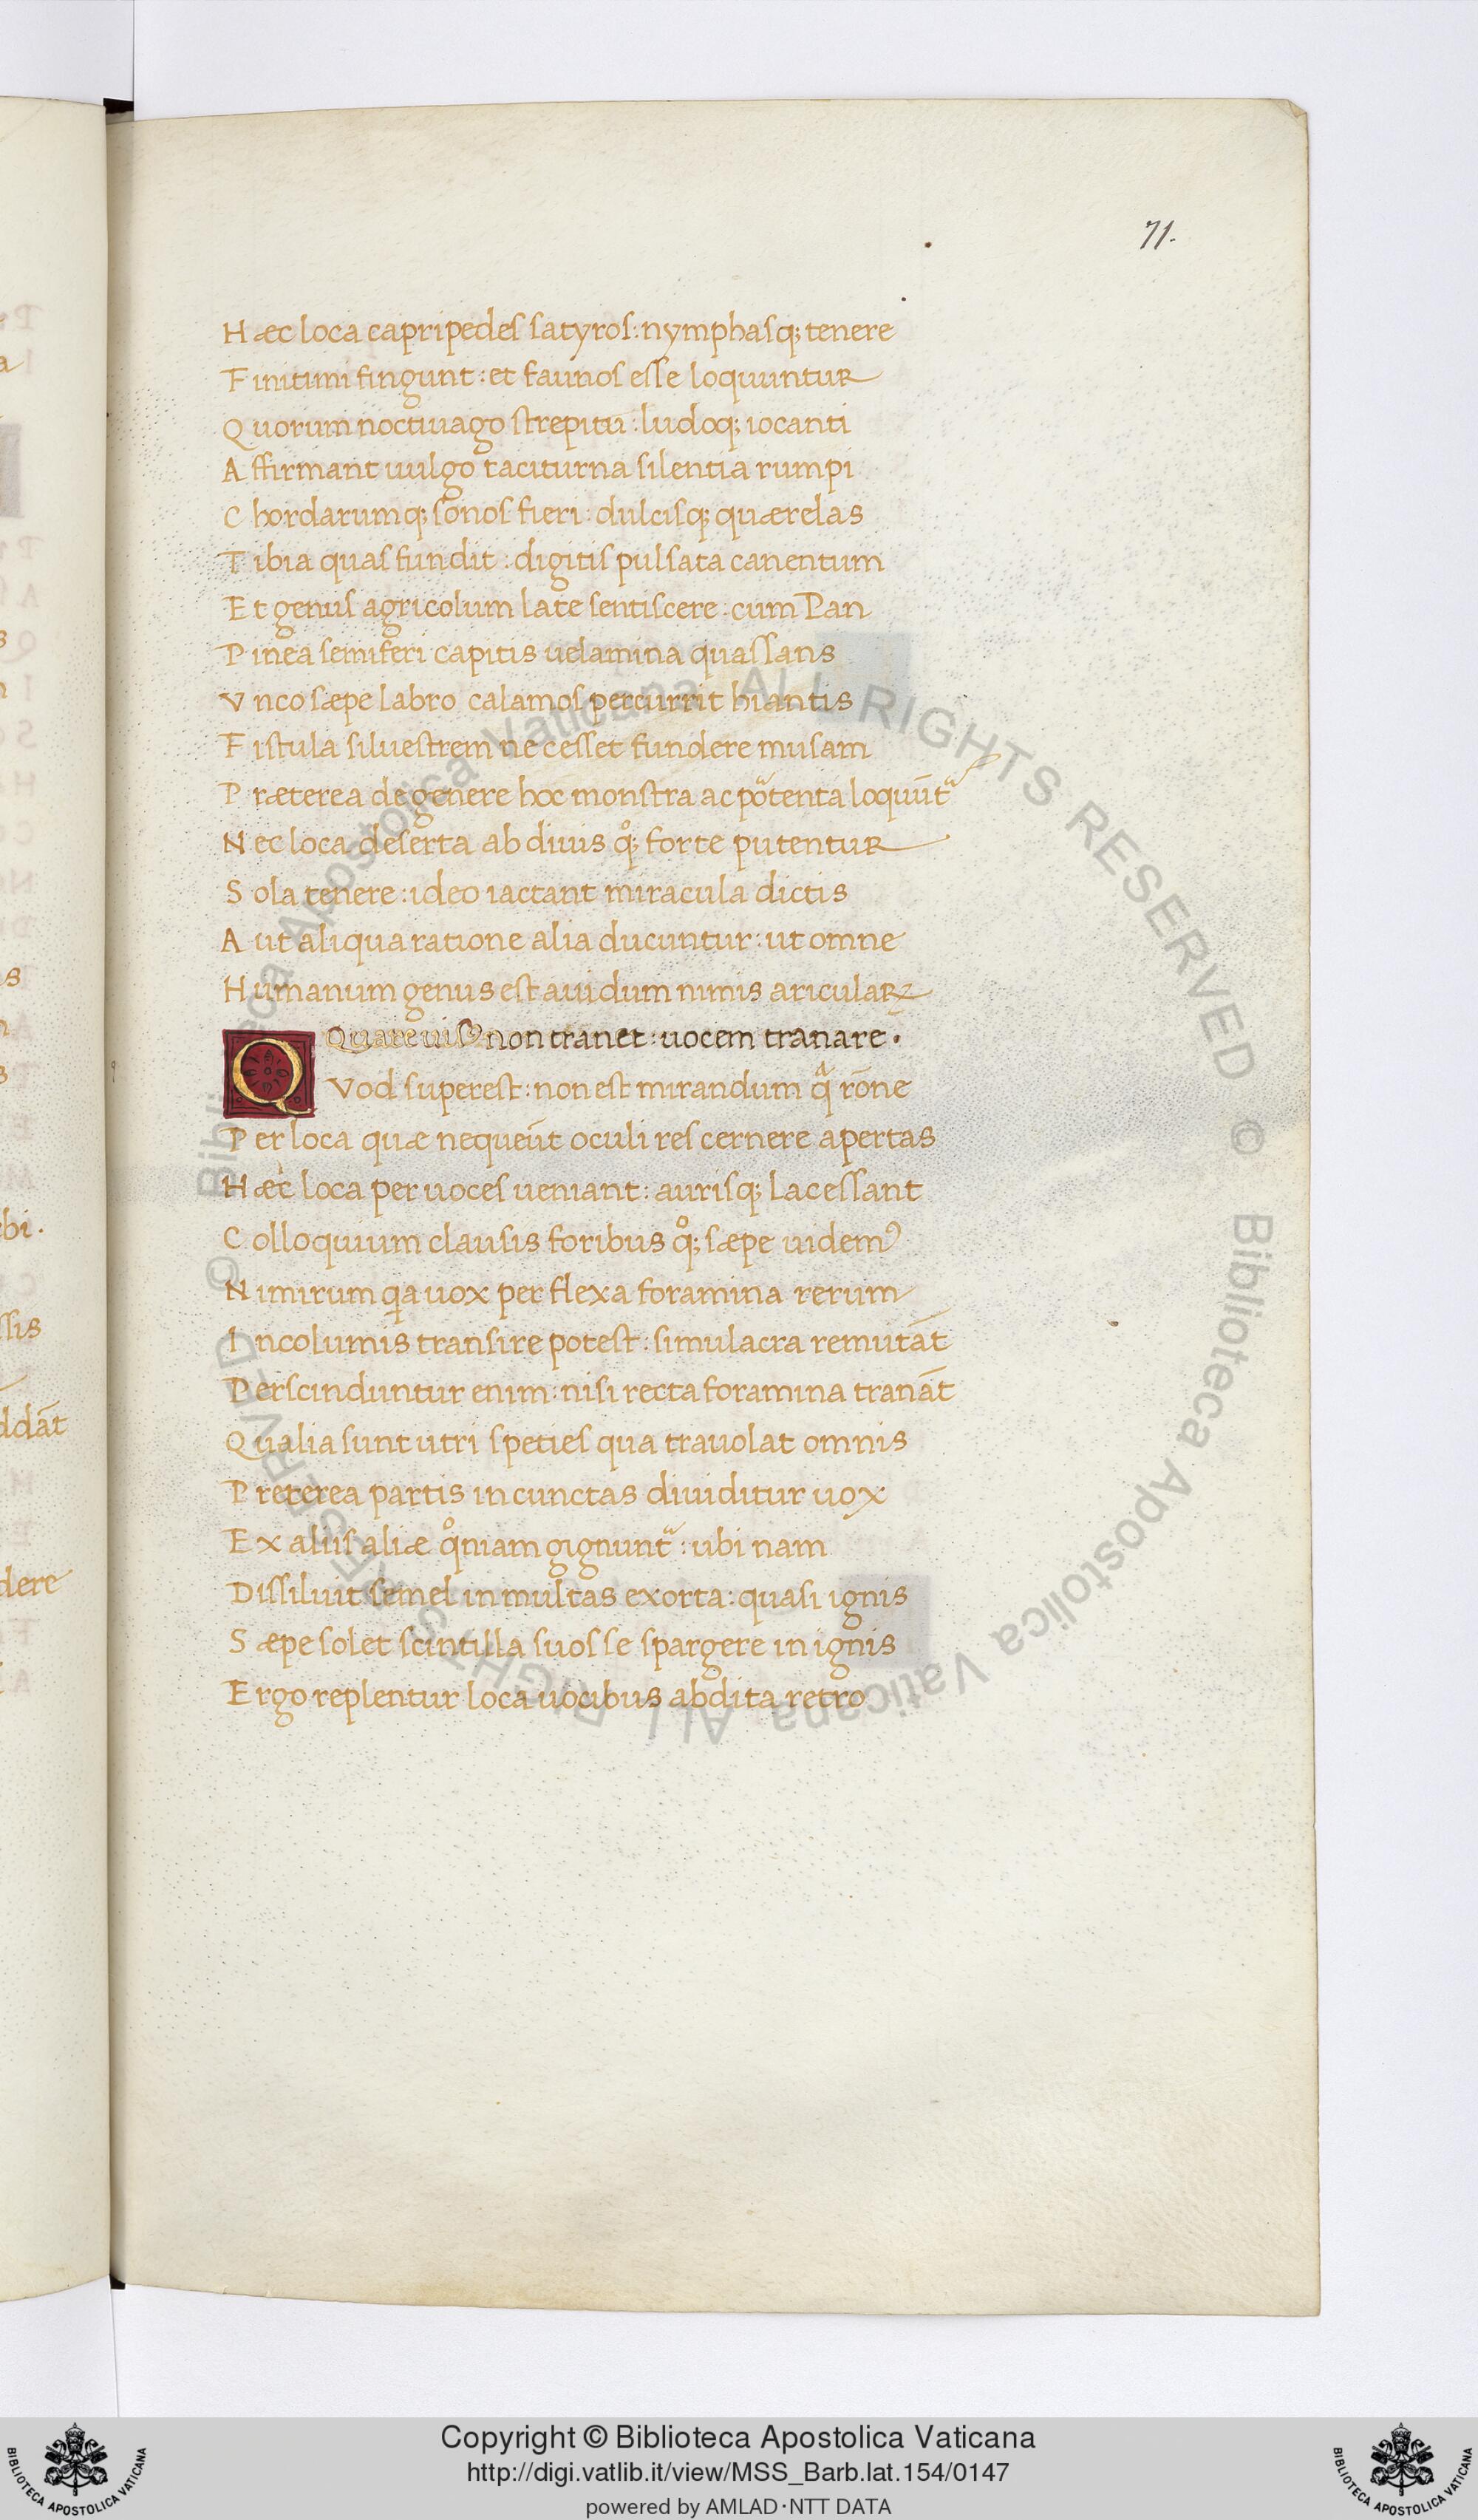 71.
Hæc loca capripedes satyros: nymphasq; tenere
Finitimi fingunt: et faunos esse loquuntur
Quorum noctiuago strepitu: ludoq; iocanti
Affirmant uulgo taciturna silentia rumpi
Chordarumq; sonos fieri: dulcisq; quærelas
Tibia quas fundit: digitis pulsata canentum
Et genus agricolum late sentiscere: cum Pan
Pinea semiferi capitis uelamina quassans
Vnco sæpe labro calamos percurrit hiantis
Fistula siluestrem ne cesset fundere musam
Præterea de genere hoc monstra ac potenta loquūt
Nec loca deserta ab diuis qͦ; forte putentur
Sola tenere: ideo iactant miracula dictis
Aut aliqua ratione alia ducuntur: ut omne
Humanum genus est auidum nimis aricularꝝ
Quare non tranet: uocem tranare.
QVod superest: non est mirandum qᷓ rōne
Per loca quæ nequeūt oculi res cernere apertas
Hæc loca per uoces ueniant: aurisq; lacessant
Colloquium clausis foribus qͦ; sæpe uidemꝰ
Nimirum qa uox per flexa foramina rerum
Incolumis transire potest: simulacra remutāt
Perscinduntur enim: nisi recta foramina tranāt
Qualia sunt utri speties qua trauolat omnis
Preterea partis in cunctas diuiditur uox
Ex aliis aliæ qͦniam gignuntᷓ: ubi nam
Dissiluit semel in multas exorta: quasi ignis
Sæpe solet scintilla suos se spargere in ignis
Ergo replentur loca uocibus abdita retro
© Biblioteca Apostolica Vaticana ALL RIGHTS RESERVED
© Biblioteca Apostolica Vaticana ALL RIGHTS RESERVED
Copyright © Biblioteca Apostolica Vaticana
http://digi.vatlib.it/view/MSS_Barb.lat.154/0147
powered by AMLAD·NTT DATA
BIBLIOTECA APOSTOLICA VATICANA
BIBLIOTECA APOSTOLICA VATICANA